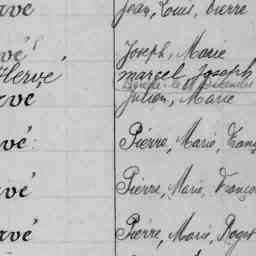 rvé Jean, Louis, Pierre
vé Joseph, Marie
Hervé marcel Joseph
Décédé le
rvé Julien, Marie
rvé Pierre, Marie, Franç
rvé Pierre, Marie, Franço
rvé Pierre, Marie, Roger